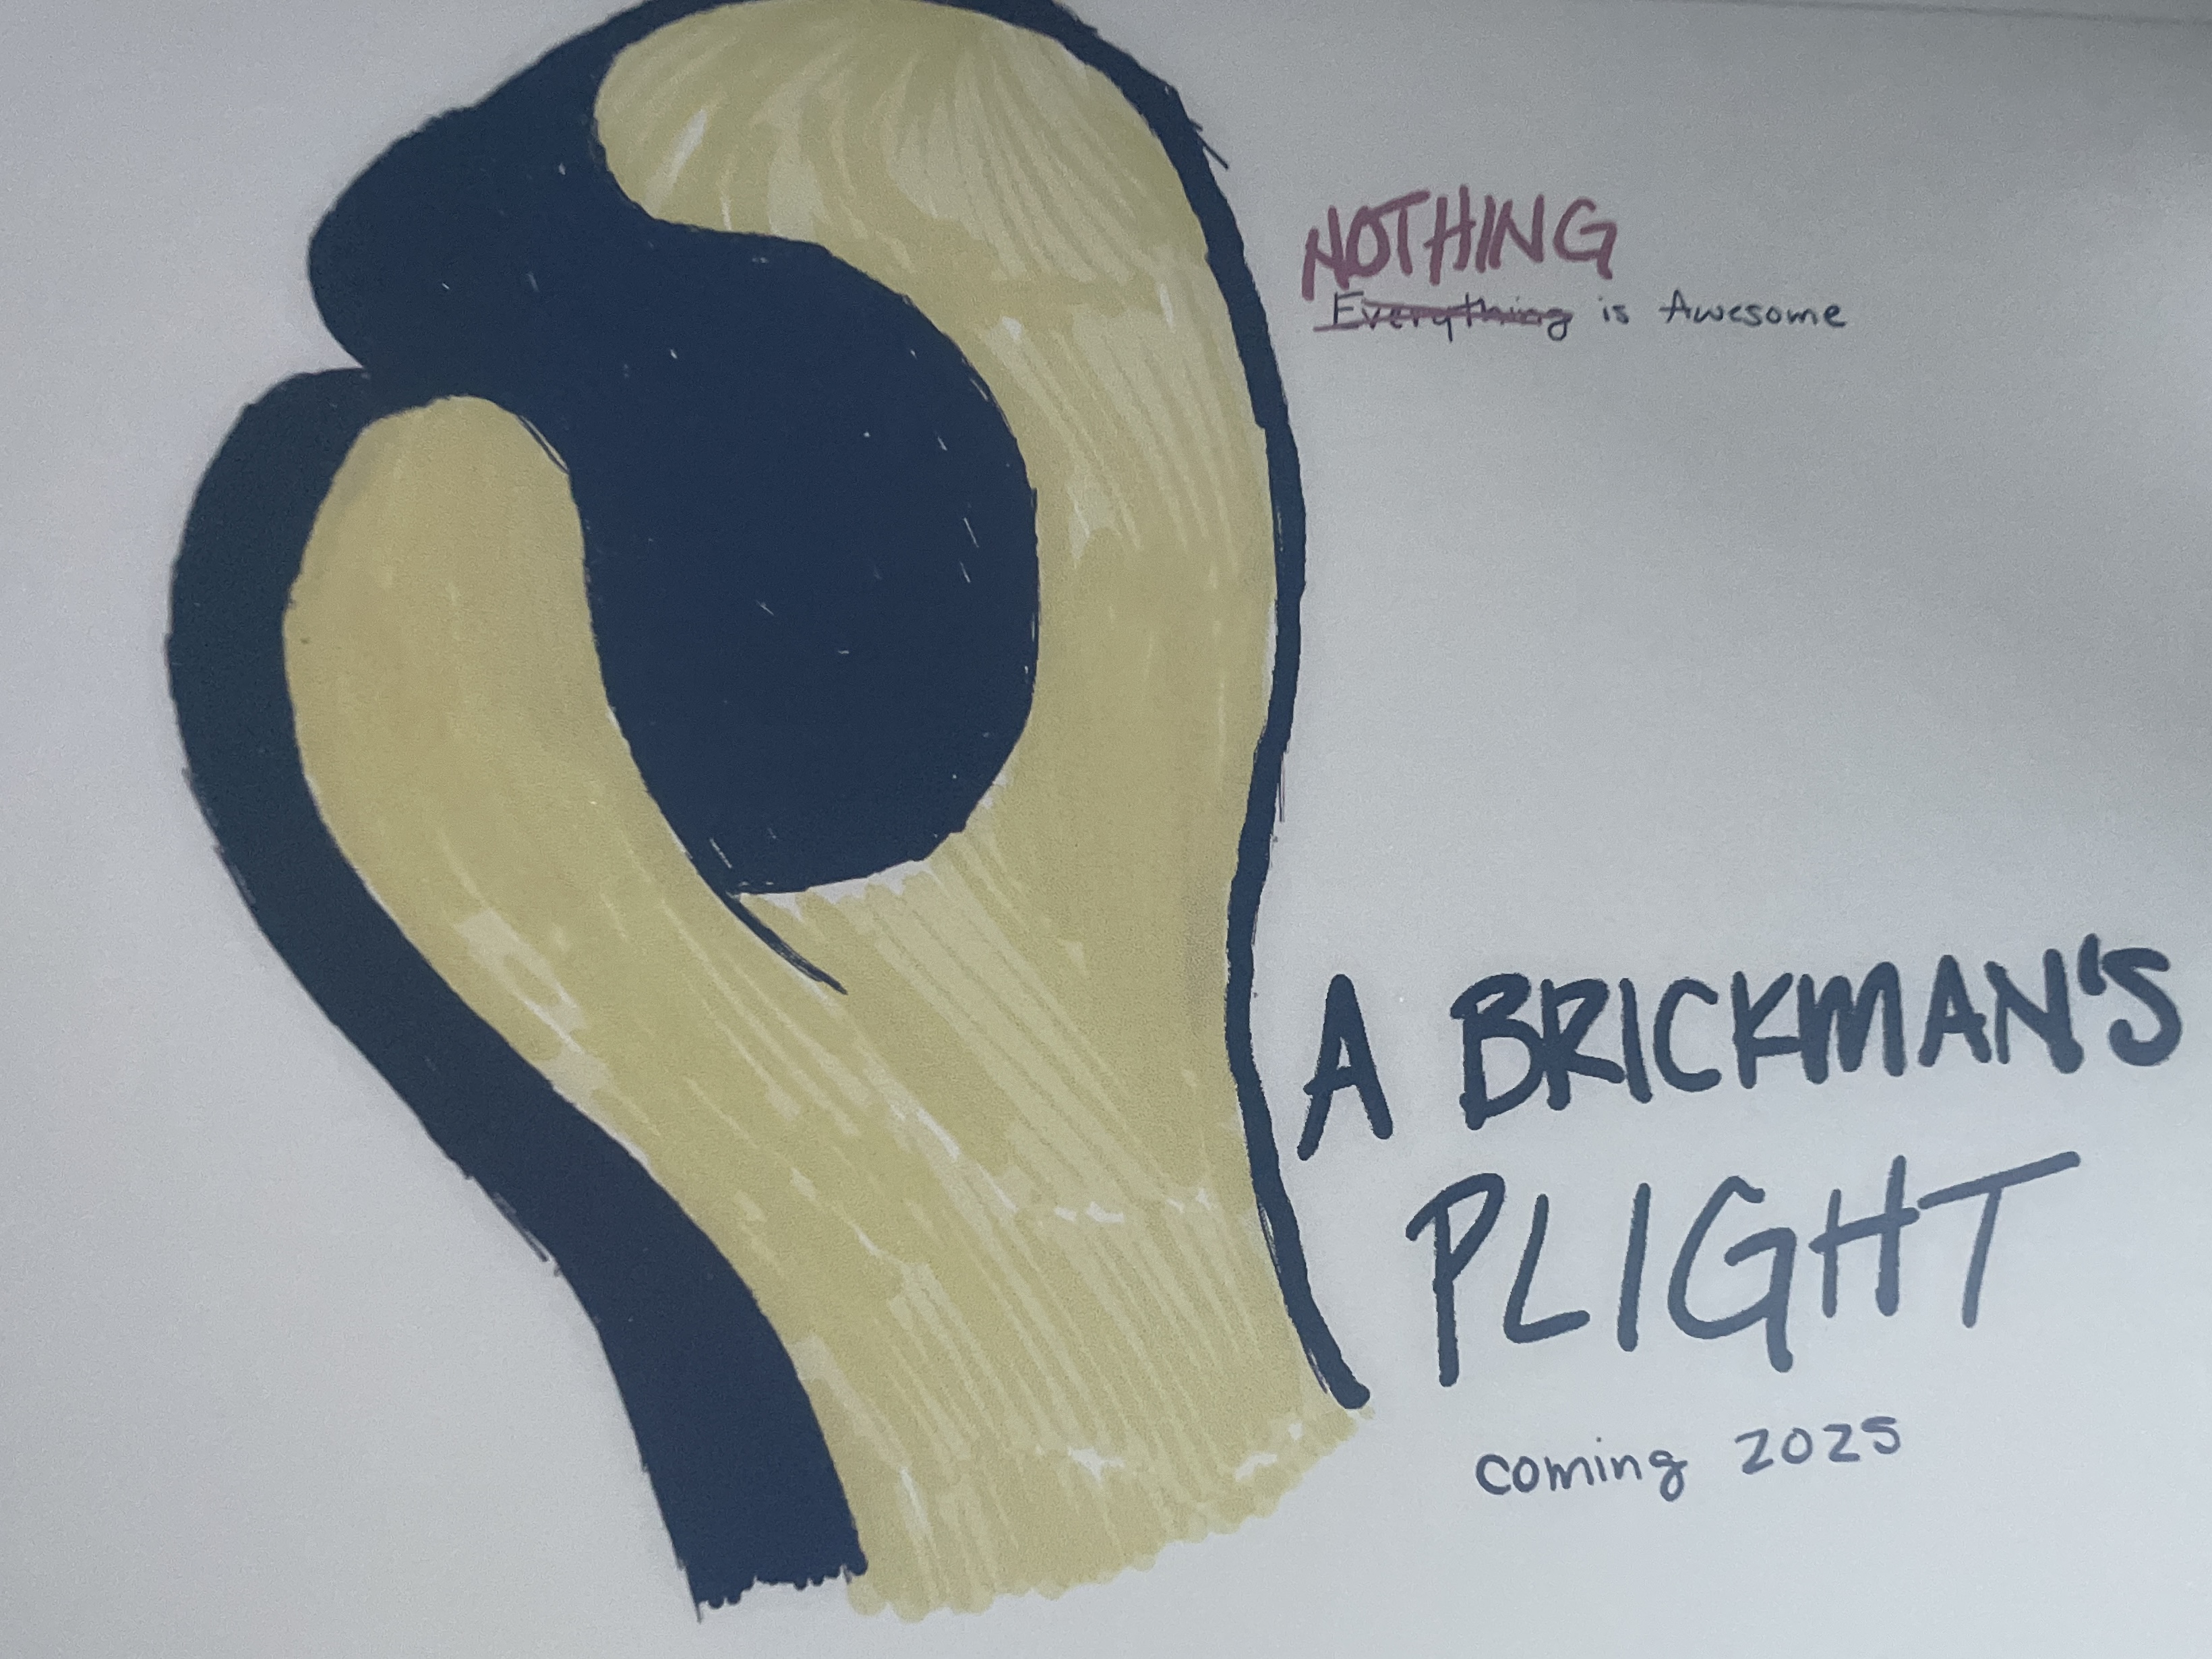 NOTHING
Everything is Awesome
A BRICKMAN'S
PLIGHT
coming 2025